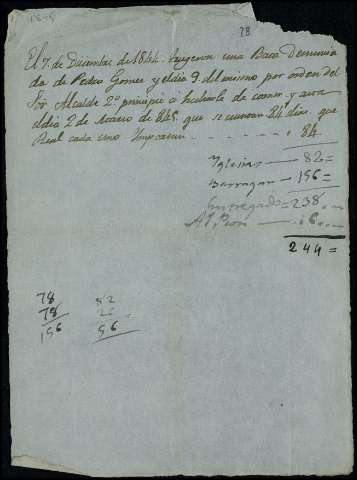 1845
78
El 7 de Diciembre de 1844. trageron una Baca Denuncia
da de Pedro Gomez y el dia 9. del mismo por orden del
Sor Alcalde 2º principie á hecharle de comer, y asta
el dia 2 de Marzo de 845. que se cuentan 84 dias que
Real cada uno Importan 84.
Yglesias 82=
Barragan 156=
Entregado=238
Al Peon 06
244=
78
78
156
82
56